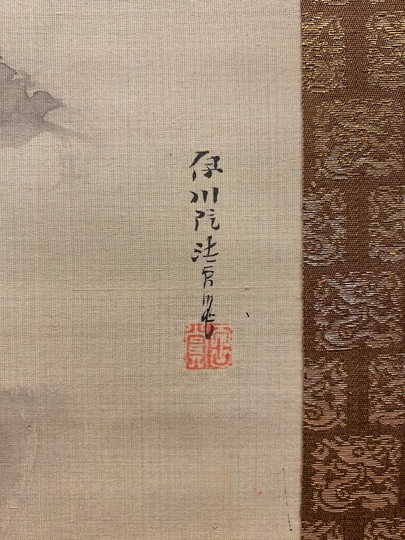 伊川院法眼筆